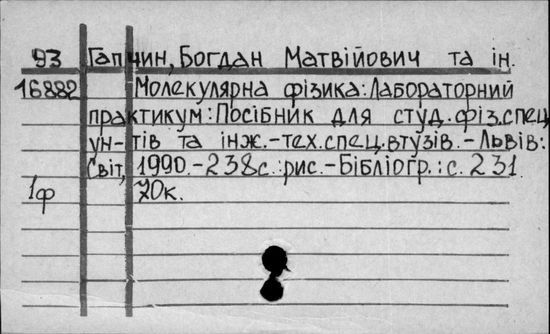 93 Гапчин, Богдан Матвійович та ін.
16882 Молекулярна фізика: Лабораторний
практикум: Посібник для студ. фіз. спец
ун-тів та інж.-тех. спец. втузів. - Львів:
Світ, 1990. - 238с.: рис. - Бібліогр.: с. 231.
1ф 70к.